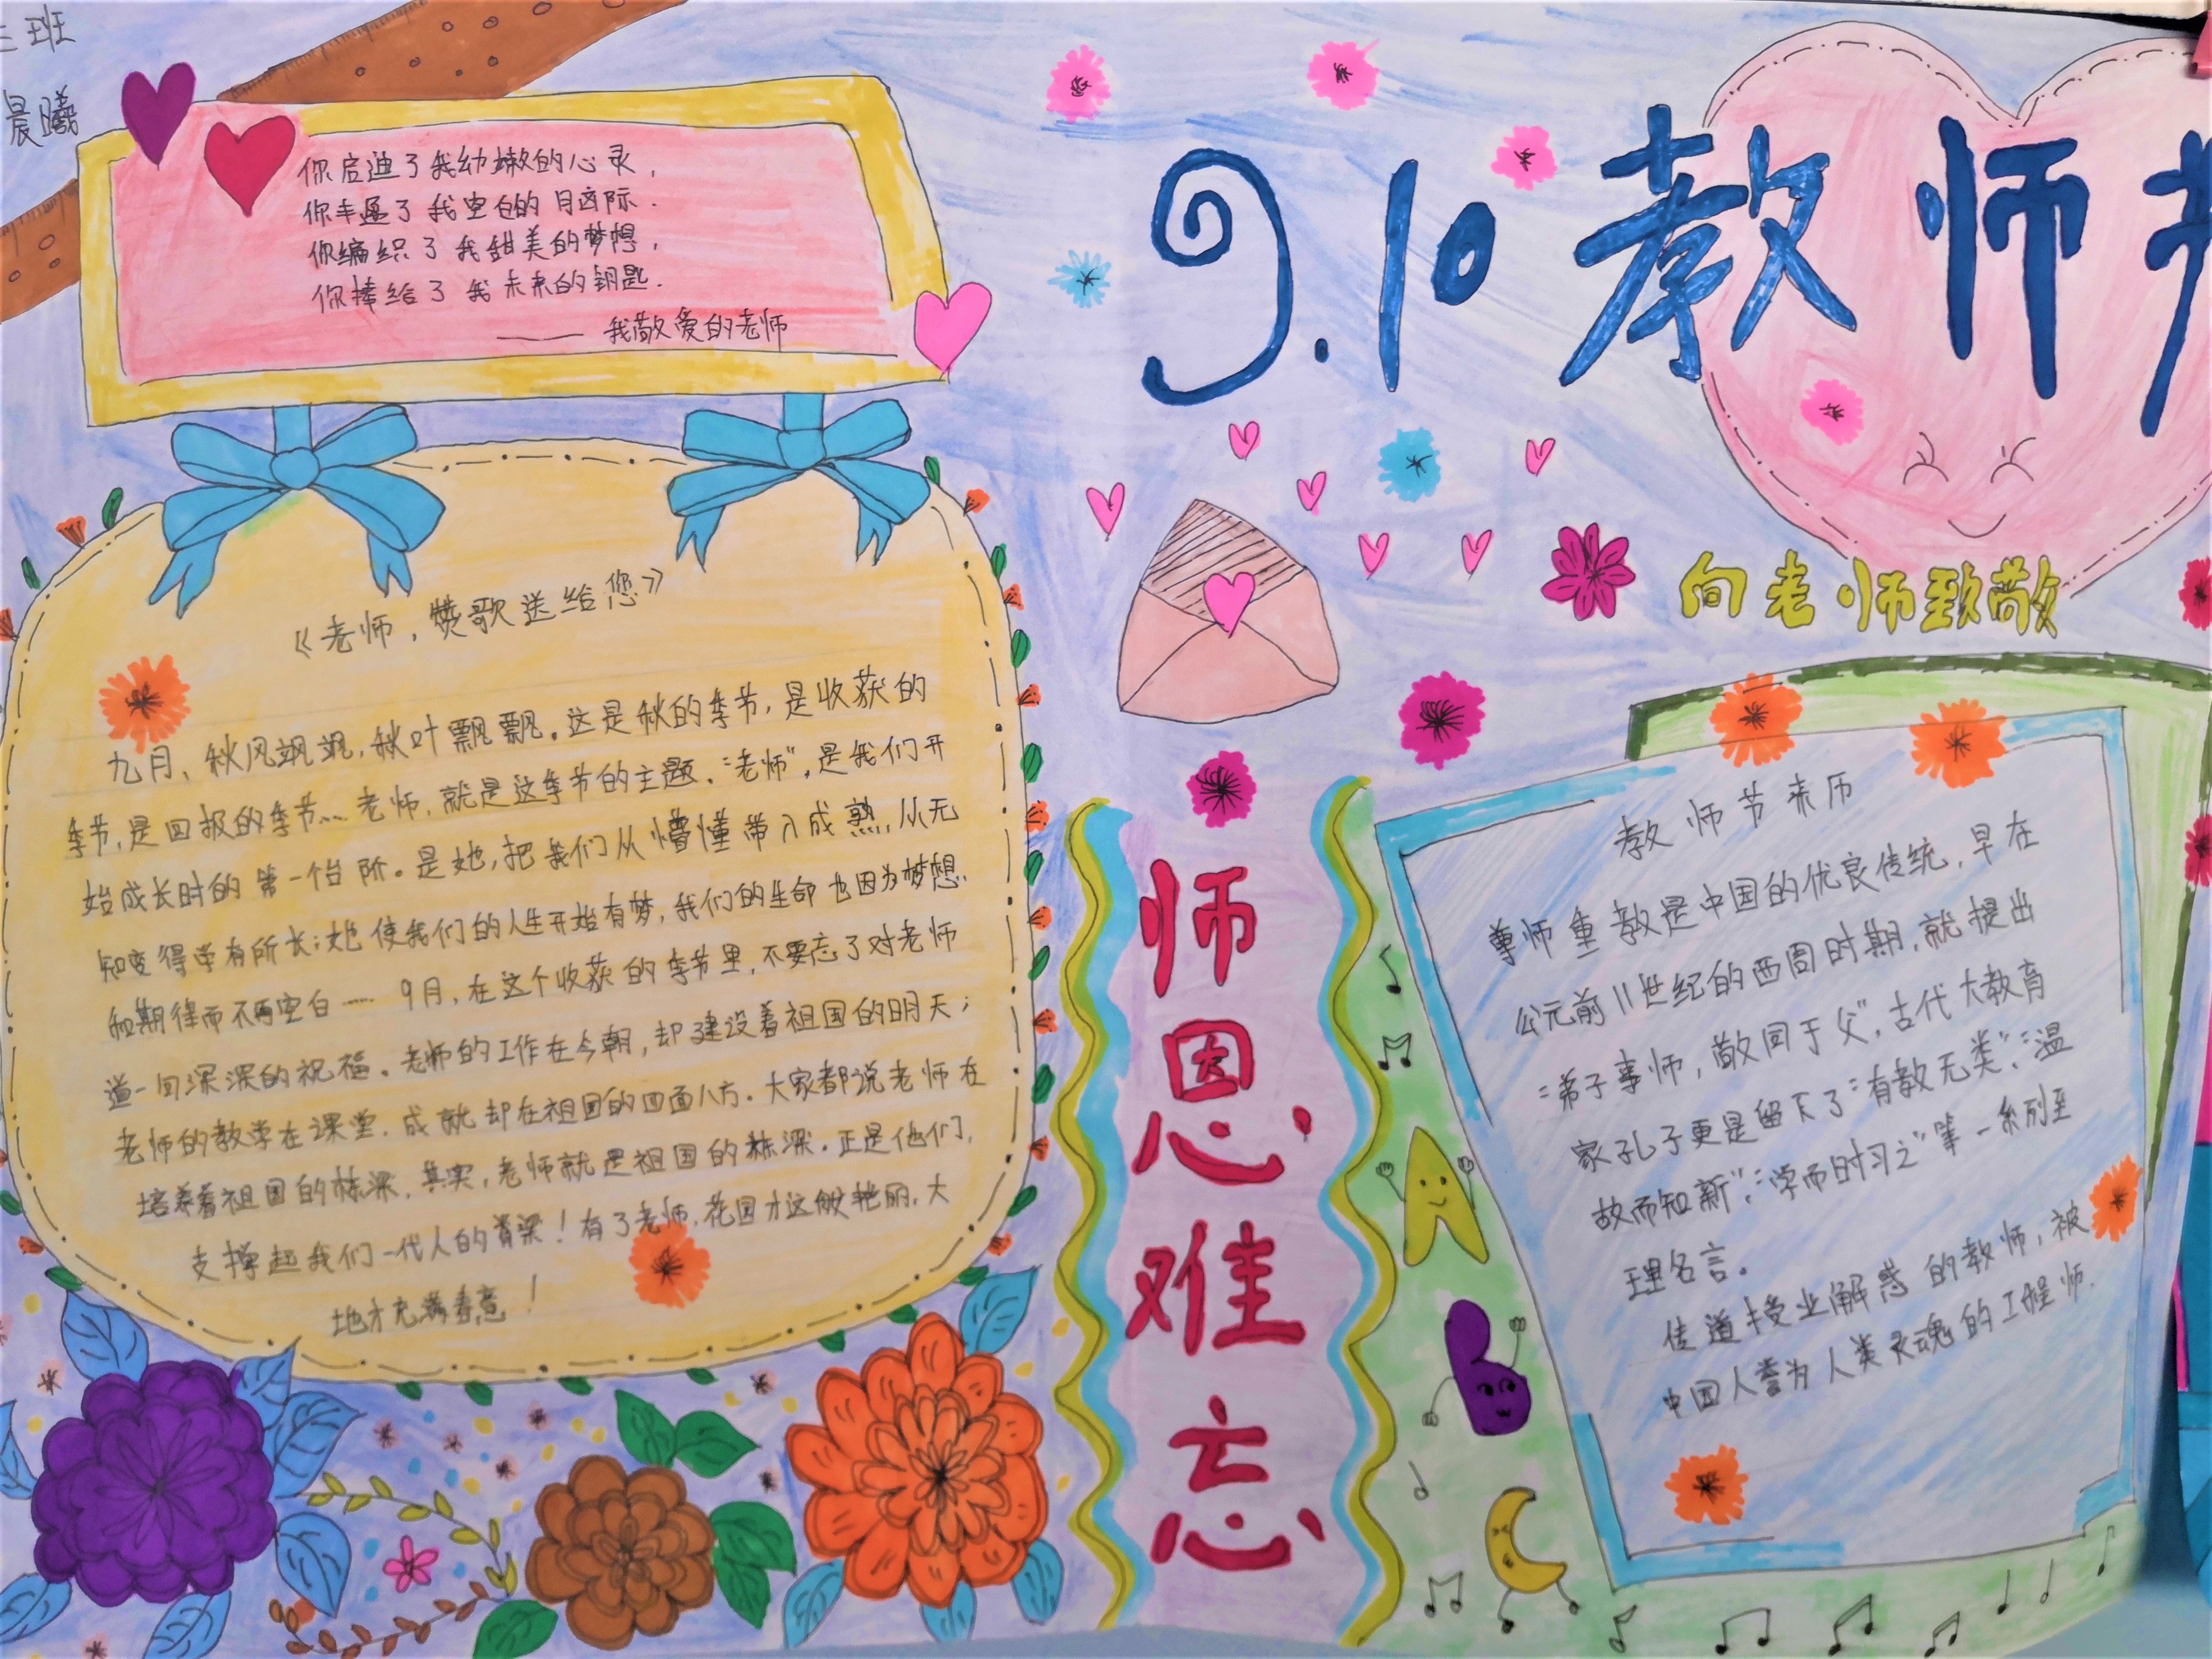 三班
晨曦
你启迪了我幼嫩的心灵,
你丰盈了我空白的脑际.
你编织了我甜美的梦想,
你捧给了我未来的钥匙.
——我敬爱的老师
9.10教师
向老师致敬
《老师,赞歌送给您》
九月、秋风飒飒,秋叶飘飘。这是秋的季节,是收获的
季节,是回报的季节……老师,就是这季节的主题.“老师”,是我们开
始成长时的第一个台阶。是她,把我们从懵懂带入成熟,从无
知变得学有所长;她使我们的人生开始有梦,我们的生命也因为梦想
和期待而不再空白…… 9月,在这个收获的季节里,不要忘了对老师
道一句深深的祝福。老师的工作在今朝,却建设着祖国的明天;
老师的教学在课堂.成就却在祖国的四面八方.大家都说老师在
培养着祖国的栋梁,其实,老师就是祖国的栋梁.正是他们,
支撑起我们一代人的脊梁!有了老师,花园才这般艳丽,大
地才充满春意!
师恩难忘
教师节来历
尊师重教是中国的优良传统,早在
公元前11世纪的西周时期,就提出
“弟子事师,敬同于父”,古代大教育
家孔子更是留下了“有教无类”,“温
故而知新”,“学而时习之”等一系列至
理名言。
传道授业解惑的教师,被
中国人誉为人类灵魂的工程师.